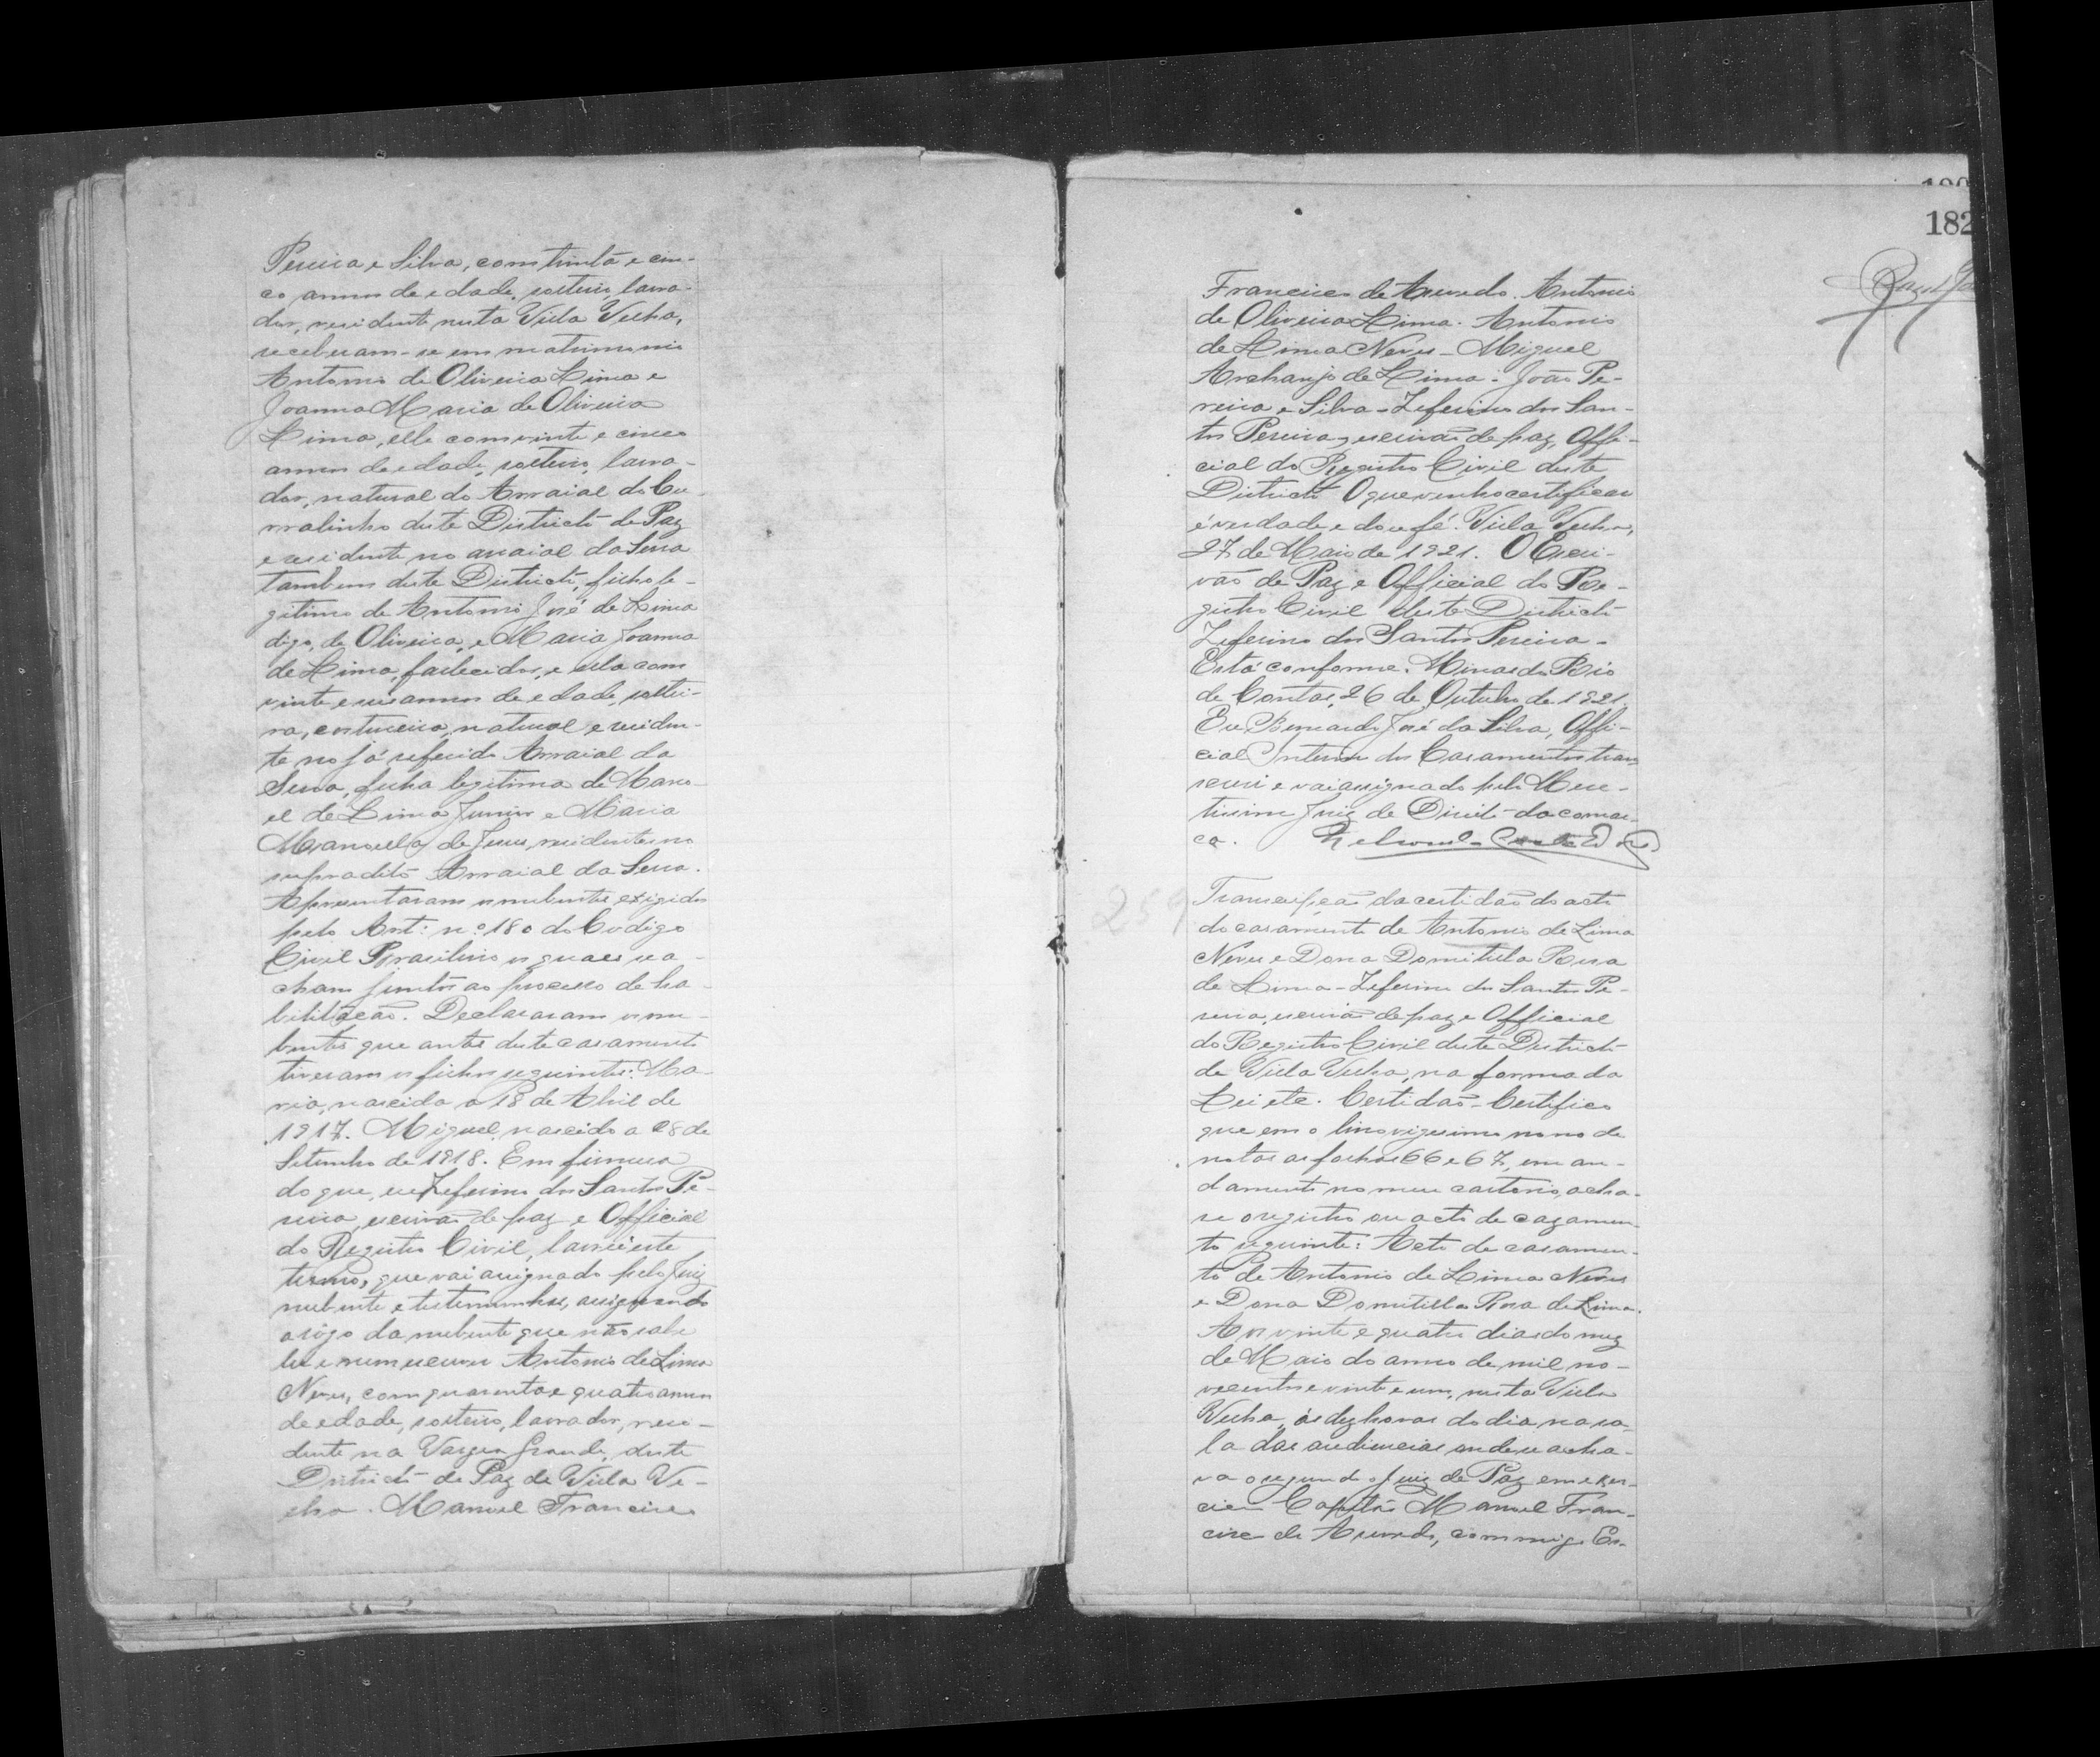 Pereira e Silva, com trinta e cin-
co annos de edade, solteiro, lavra-
dor, residente nesta Villa Velha,
receberam-se em matrimonio
Antonio de Oliveira Lima e
Joanna Maria de Oliveira
Lima, elle com vinte e cinco
annos de edade, solteiro, lavra-
dor, natural do Arraial do Cu-
rralinho deste Districto de Paz
e residente no arraial da Serra
tambem deste Districto, filho le-
gitimo de Antonio José de Lima
digo, de Oliveira, e Maria Joanna
de Lima, fallecidos, e ella com
vinte e seis annos de edade, soltei-
ra, costureira, natural e residen-
te no já referido Arraial da
Serra, filha legitima de Mano-
el de Lima Junior e Maria
Manoella de Jesus, residentes no
supradito Arraial da Serra.
Apresentaram os nubentes exigidos
pelo Art: nº 180 do Codigo
Civil Brasileiro os quaes se a-
cham juntos ao processo de ha-
bilitação. Declararam os nu-
bentes que antes deste casamento
tiveram os filhos seguintes: Ma-
ria, nascida a 18 de Abril de
1917. Miguel, nascido a 28 de
Setembro de 1918. Em firmeza
do que, eu Zeferino dos Santos Pe-
reira, escrivão de paz e Official
do Registro Civil, lavrei este
termo, que vai assignado pelo Juiz
nubente e testemunhas, assignando
a rôgo da nubente que não sabe
ler e nem escrever Antonio de Lima
Neves, com quarenta e quatro annos
de edade, solteiro, lavrador, resi-
dente na Vargem Grande, deste
Districto de Paz de Villa Ve-
lha. Manoel Francisco
182
Francisco de Azevedo. Antonio
de Oliveira Lima. Antonio
de Lima Neves - Miguel
Archanjo de Lima - João Pe-
reira e Silva - Zeferino dos San-
tos Pereira, escrivão de paz, Offi-
cial do Registro Civil deste
Districto O que venho certificar
é verdade e dou fé. Villa Velha,
27 de Maio de 1921. O Escri-
vão de Paz e Official do Re-
gistro Civil deste Districto
Zeferino dos Santos Pereira -
Está conforme. Minas do Rio
de Contas, 26 de Outubro de 1921.
Eu Bernardo José da Silva, Offi-
cial Interino dos Casamentos trans
screvi e vai assignado pelo Mere-
tissimo Juiz de Direito da comar-
ca.
259
Transcripção da certidão do acto
do casamento de Antonio de Lima
Neves e Dona Domitilla Rosa
de Lima - Zeferino dos Santos Pe-
reira, escrivão de paz e Official
do Registro Civil deste Districto
de Villa Velha, na forma da
Lei etc. Certidão - Certifico
que em o livro vigesimo nono de
notas as folhas 66 e 67, em an-
damento no meu cartorio, acha-
se o registro ou acto de cazamen-
to seguinte: Acto de casamen-
to de Antonio de Lima Neves
e Dona Domitilla Rosa de Lima.
Aos vinte e quatro dias do mez
de Maio do anno de mil no-
vecentos e vinte e um, nesta Villa
Velha, ás dez horas do dia, na sa-
la das audiencias onde se acha-
va o segundo Juiz de Paz em exer-
cicio Capitão Manoel Fran-
cisco de Azevedo, commigo Es-